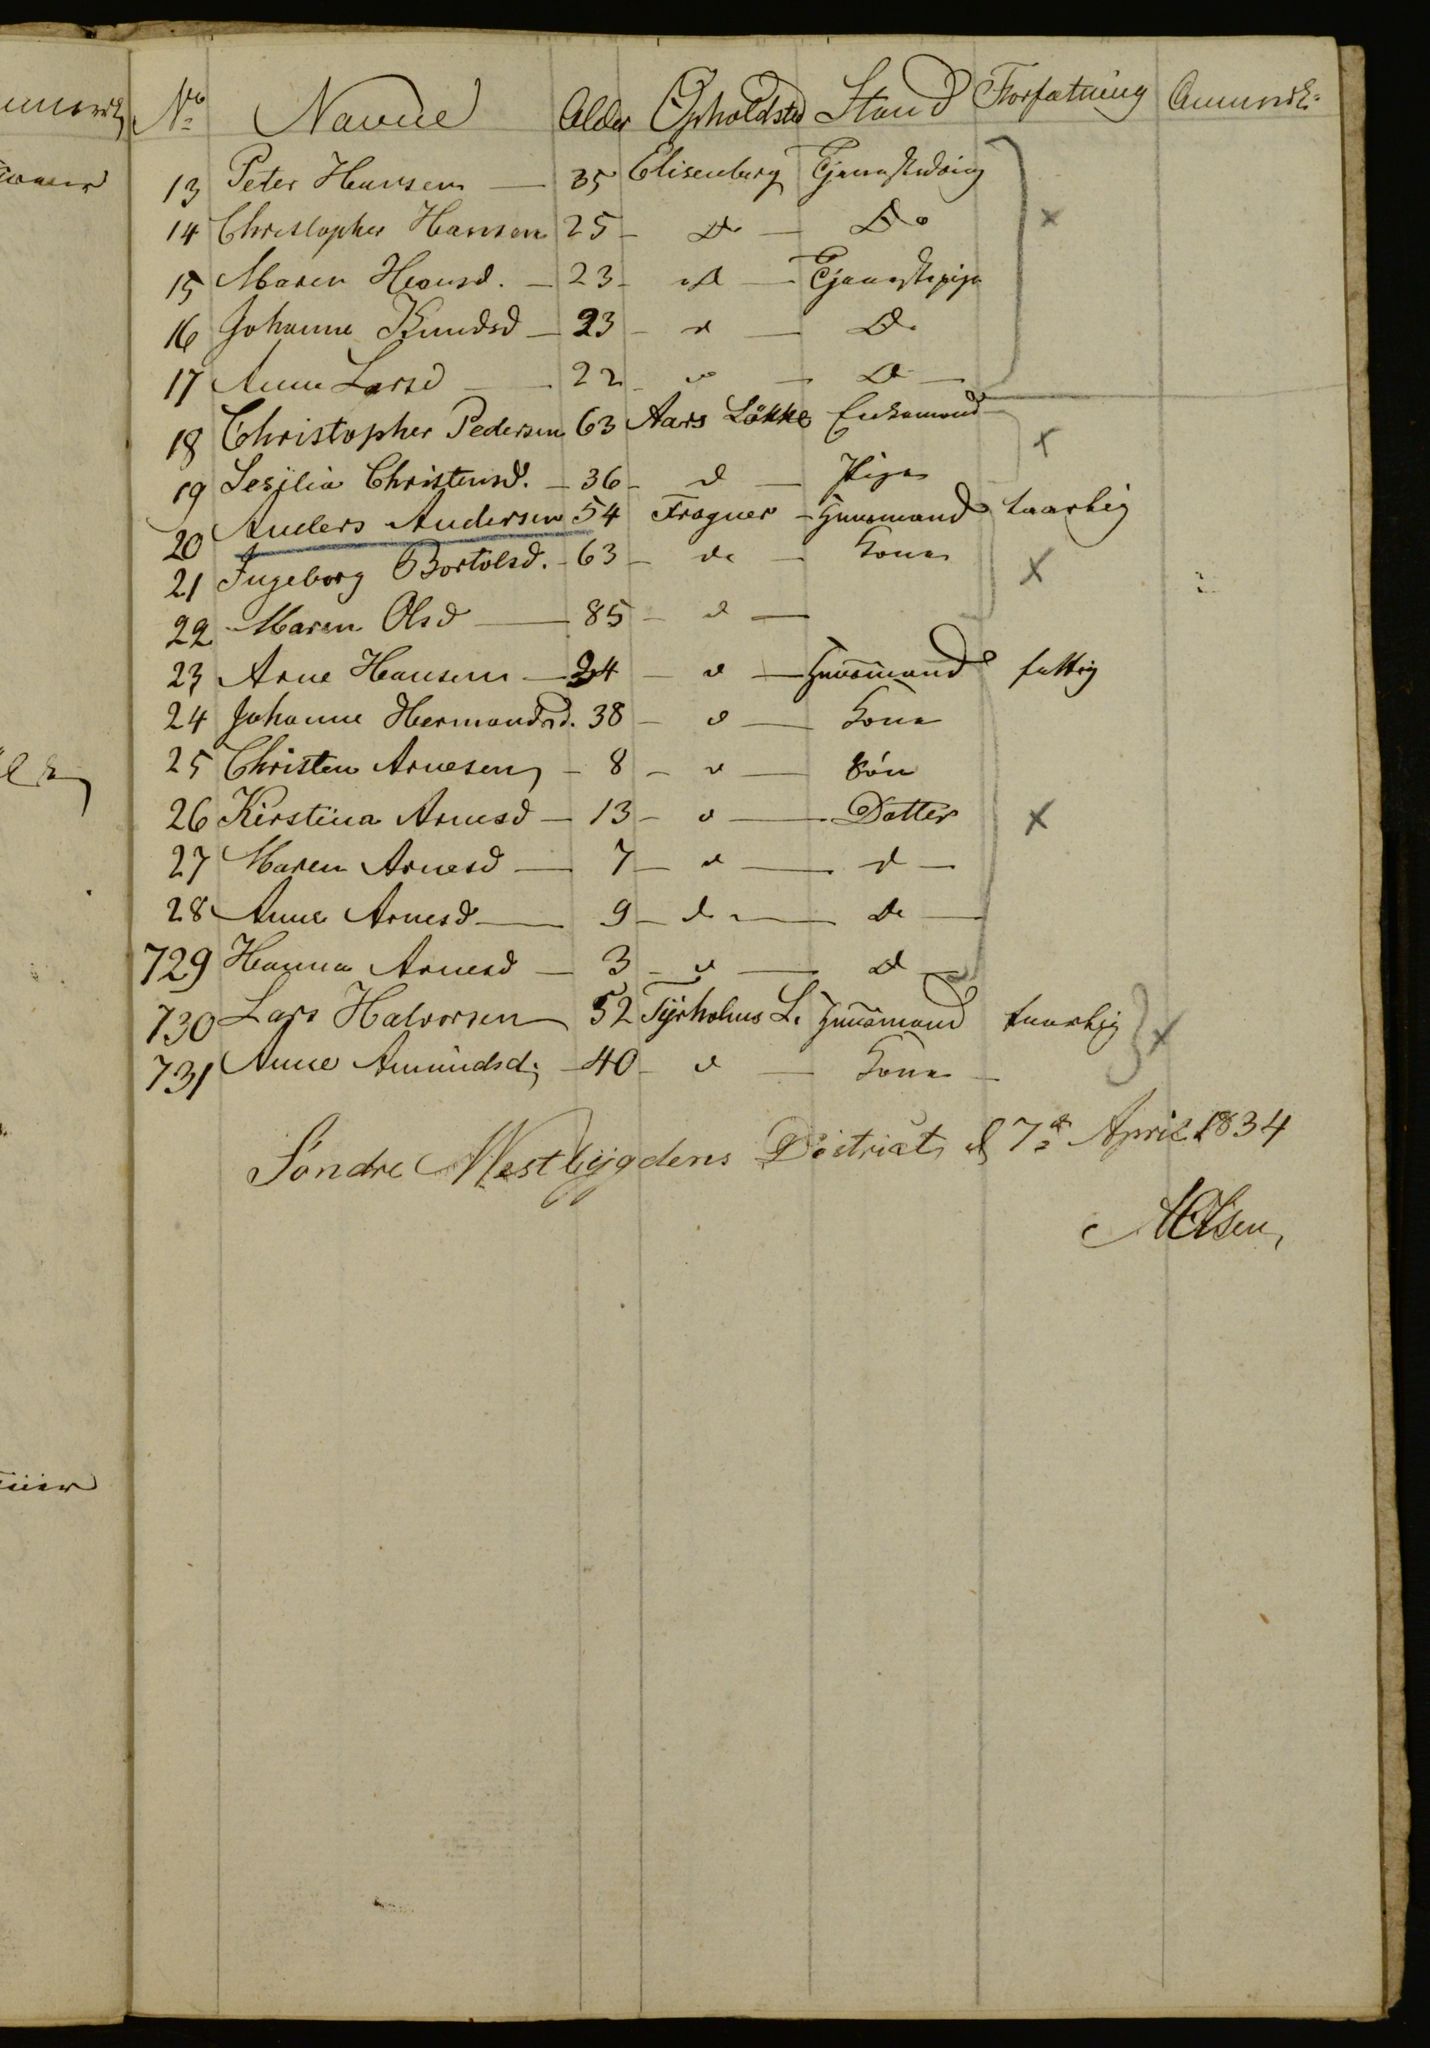 No Navne Alder Opholdsted Stand Forfatning Anmærk:
13 Peter Hansen — 35 Elisenberg Tjenestedreng
14 Christopher Hansen 25 — Do — Do
15 Maren Hansd. — 23 — d — Tjenestepige
16 Johanne Knudsd — 23 — d — Do
17 Anne Larsd — 22 — d — D —
18 Christopher Pedersen 63 Aars Løkke Enkemand
19 Sesilia Christensd. — 36 — d — Pige
20 Anders Andersen 54 Frogner — Huusmand taarlig
21 Ingeborg Bortolsd. — 63 — do — Kone
22 Maren Olsd — 85 — d —
23 Arne Hansen — 34 — d — Huusmand fattig
24 Johanne Hermandsd. 38 — d — Kone
25 Christen Arnesen — 8 — d — Søn
26 Kirstina Arnesd — 13 — d — Datter
27 Maren Arnesd — 7 — d — d —
28 Anne Arnesd — 9 — do — Do —
729 Hanna Arnesd — 3 — d — d —
730 Lars Halvorsen 52 Tyrholms L. Huusmand taarlig
731 Anne Amundsd; — 40 — d — Kone —
Søndre Westbygdens District d 7de April 1834
A Olsen,